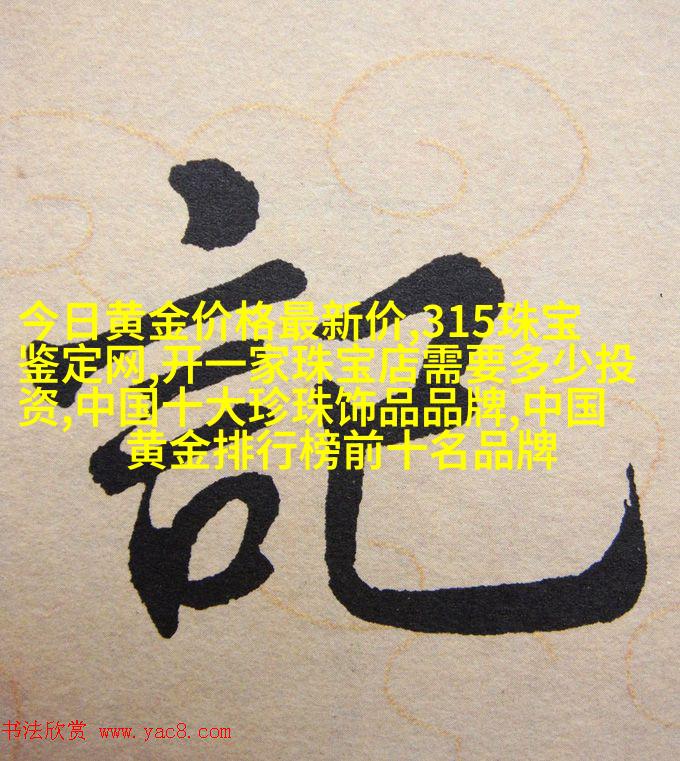 記
今日黄金价格最新价,315珠宝
鉴定网,开一家珠宝店需要多少投
资,中国十大珍珠饰品品牌,中国
黄金排行榜前十名品牌
书法欣赏 www.yac8.com